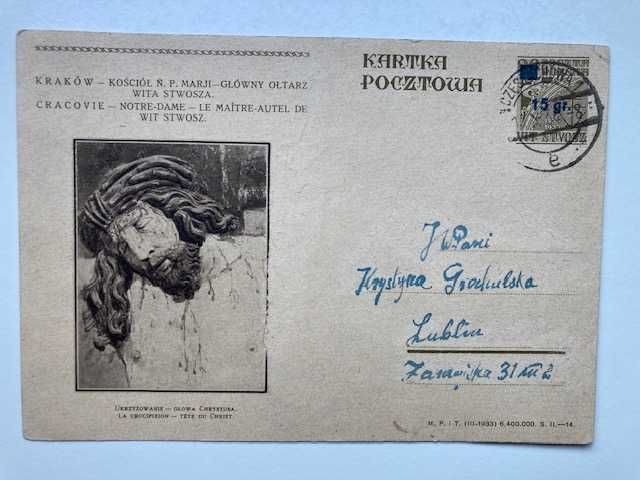 KRAKÓW — KOŚCIÓŁ N. P. MARJI—GŁÓWNY OŁTARZ
WITA STWOSZA.
CRACOVIE — NOTRE-DAME — LE MAÎTRE-AUTEL DE
WIT STWOSZ.
KARTKA
POCZTOWA
15 gr.
WIT STWOSZ
JWPani
Krystyna Grochulska
Lublin
Zamojska 31 m 2
UKRZYŻOWANIE — GŁOWA CHRYSTUSA.
LA CRUCIFIXION — TÊTE DU CHRIST.
M. P. i T. (10-1933) 6,400.000. S. II.—14.